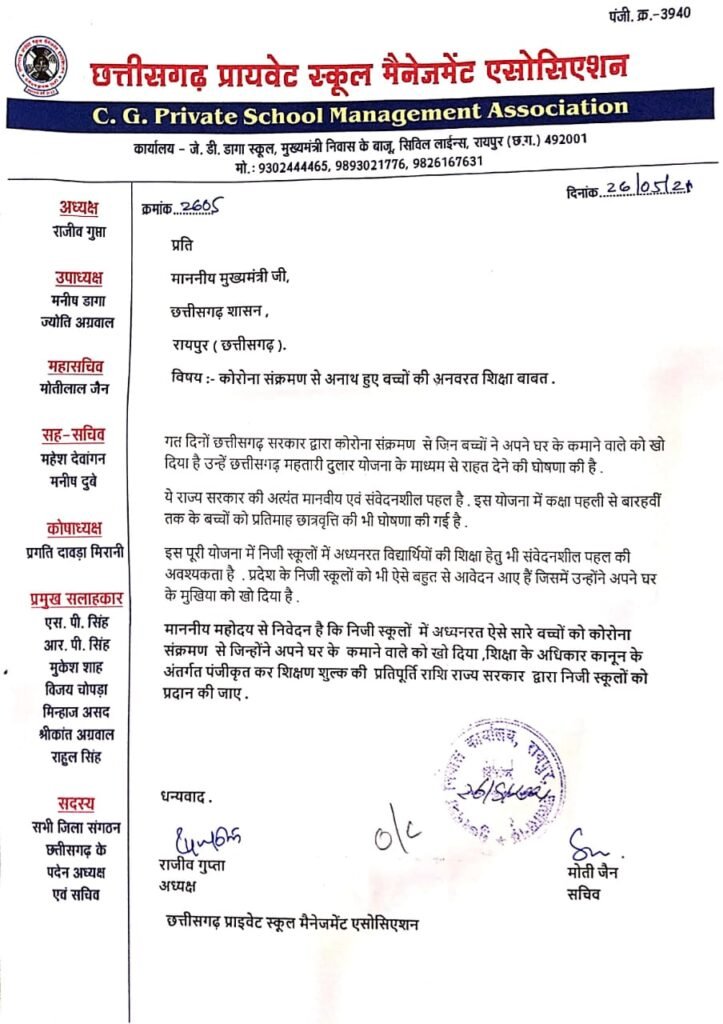 पंजी. क्र.-3940
छत्तीसगढ़ प्रायवेट स्कूल मैनेजमेंट एसोसिएशन
C. G. Private School Management Association
कार्यालय - जे. डी. डागा स्कूल, मुख्यमंत्री निवास के बाजू, सिविल लाईन्स, रायपुर (छ.ग.) 492001
मो.: 9302444465, 9893021776, 9826167631
क्रमांक 2605
दिनांक 26/05/21
अध्यक्ष
राजीव गुप्ता
उपाध्यक्ष
मनीष डागा
ज्योति अग्रवाल
महासचिव
मोतीलाल जैन
सह-सचिव
महेश देवांगन
मनीष दुबे
कोषाध्यक्ष
प्रगति दावड़ा मिरानी
प्रमुख सलाहकार
एस. पी. सिंह
आर. पी. सिंह
मुकेश शाह
विजय चोपड़ा
मिन्हाज असद
श्रीकांत अग्रवाल
राहुल सिंह
सदस्य
सभी जिला संगठन
छत्तीसगढ़ के
पदेन अध्यक्ष
एवं सचिव
प्रति
माननीय मुख्यमंत्री जी,
छत्तीसगढ़ शासन ,
रायपुर ( छत्तीसगढ़ ).
विषय :- कोरोना संक्रमण से अनाथ हुए बच्चों की अनवरत शिक्षा बाबत .
गत दिनों छत्तीसगढ़ सरकार द्वारा कोरोना संक्रमण से जिन बच्चों ने अपने घर के कमाने वाले को खो
दिया है उन्हें छत्तीसगढ़ महतारी दुलार योजना के माध्यम से राहत देने की घोषणा की है .
ये राज्य सरकार की अत्यंत मानवीय एवं संवेदनशील पहल है . इस योजना में कक्षा पहली से बारहवीं
तक के बच्चों को प्रतिमाह छात्रवृत्ति की भी घोषणा की गई है .
इस पूरी योजना में निजी स्कूलों में अध्यनरत विद्यार्थियों की शिक्षा हेतु भी संवेदनशील पहल की
अवश्यकता है . प्रदेश के निजी स्कूलों को भी ऐसे बहुत से आवेदन आए हैं जिसमें उन्होंने अपने घर
के मुखिया को खो दिया है .
माननीय महोदय से निवेदन है कि निजी स्कूलों में अध्यनरत ऐसे सारे बच्चों को कोरोना
संक्रमण से जिन्होंने अपने घर के कमाने वाले को खो दिया ,शिक्षा के अधिकार कानून के
अंतर्गत पंजीकृत कर शिक्षण शुल्क की प्रतिपूर्ति राशि राज्य सरकार द्वारा निजी स्कूलों को
प्रदान की जाए .
धन्यवाद .
निवास कार्यालय, रायपुर
O/C
राजीव गुप्ता
अध्यक्ष
मोती जैन
सचिव
छत्तीसगढ़ प्राइवेट स्कूल मैनेजमेंट एसोसिएशन